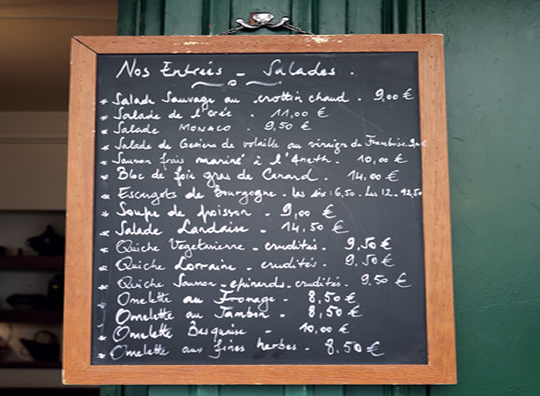 Nos Entrées - Salades.
* Salade Sauvage au crottin chaud. 9,00 €
* Salade de l'orée. 11,00 €
* Salade MONACO. 9,50 €
* Salade de Gesiers de volaille au vinaigre de Framboise 9,00 €
* Saumon frais mariné à l'Aneth. 10,00 €
* Bloc de foie gras de Canard. 14,00 €
* Escargots de Bourgogne - les six: 6,50. Les 12. 12,50
* Soupe de poisson - 9,00 €
* Salade Landaise - 14,50 €
* Quiche Végétarienne - crudités. 9,50 €
* Quiche Lorraine - crudités. 9,50 €
* Quiche Saumon - épinards - crudités - 9,50 €
* Omelette au Fromage - 8,50 €
* Omelette au Jambon - 8,50 €
* Omelette Basquaise - 10,00 €
* Omelette aux fines herbes - 8,50 €